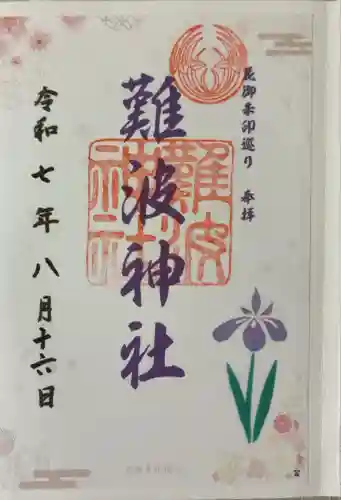 尼御朱印巡り 奉拝
難波神社
難波神社
令和七年八月十六日